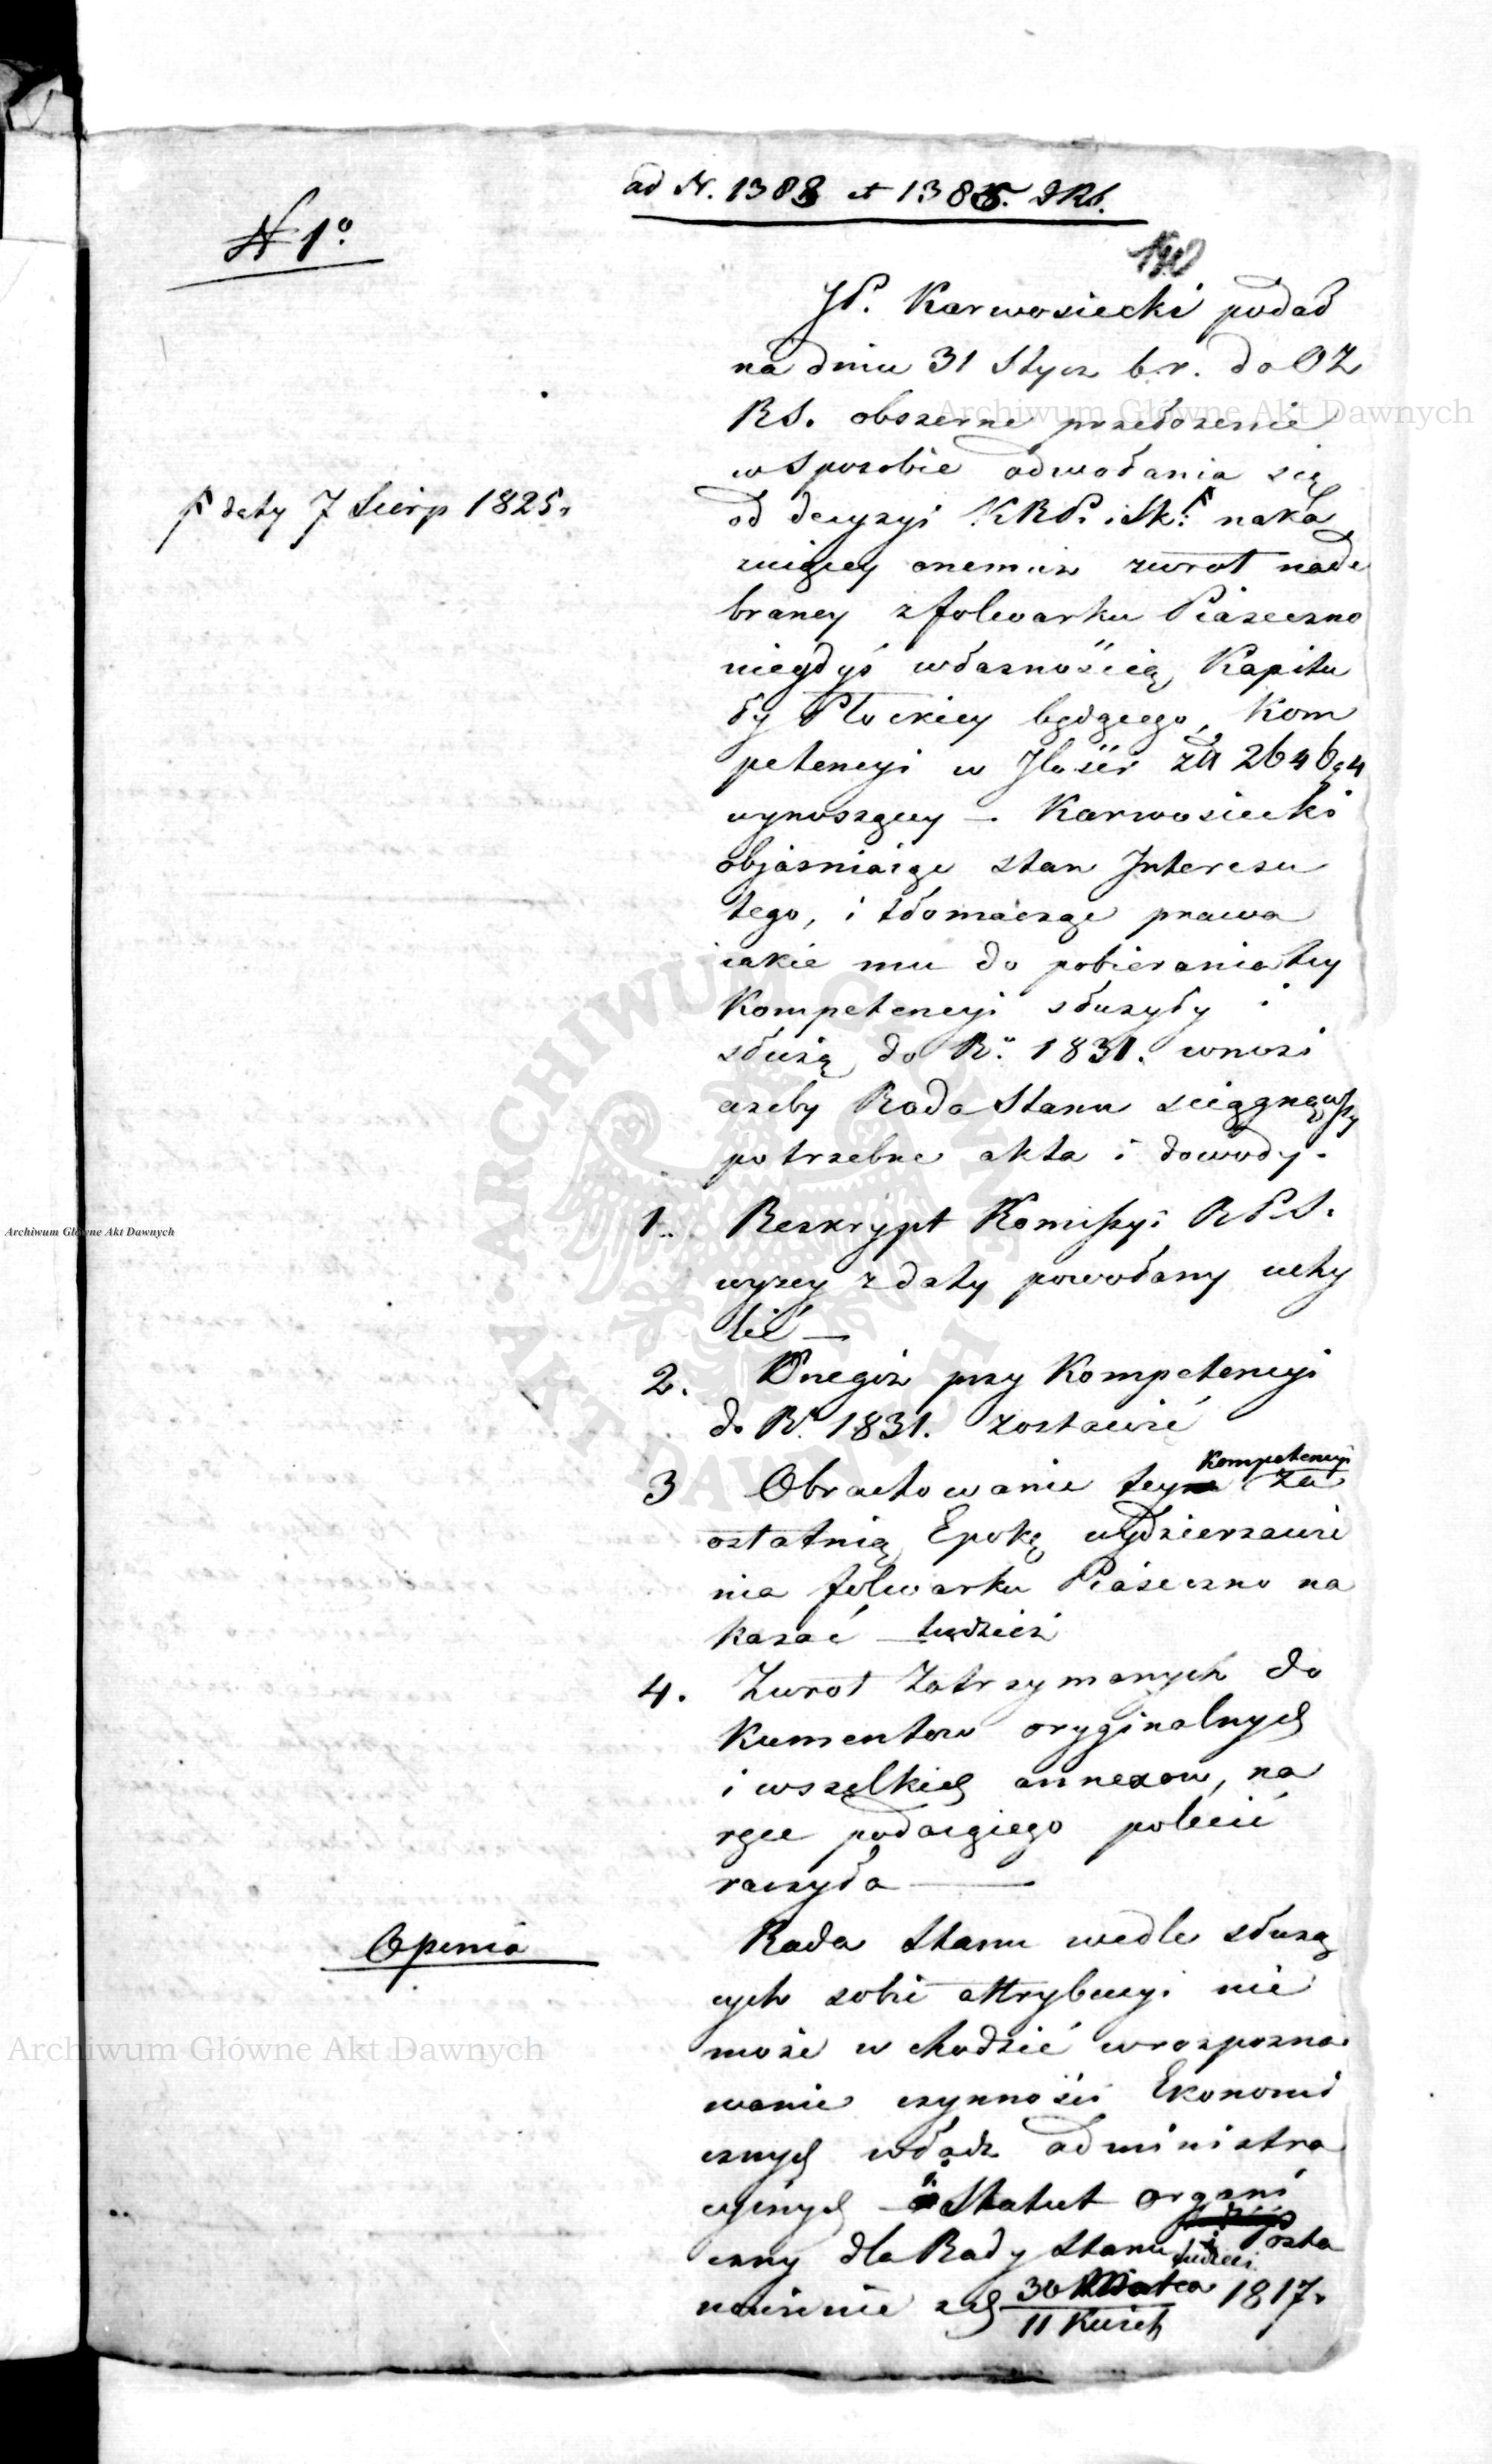 ad N. 1388 et 1385. DRS.
N 1o
190
JP. Karwosiecki podał
na dniu 31 Stycz b.r. do OZ
RS. obszerne przełożenie
w Sposobie odwołania się
od decyzyi KRP. i Sk: ꝉ naka
ꝉ daty 7 Sierp 1825.
zuiącey onemuż zwrot nade
braney z folwarku Piaseczno
niegdyś własnością Kapitu
ły Płockiey będącego, Kom
petencyi w Jlości zł 2646 g 4
wynoszącey — Karwosiecki
objaśniaiąc stan Interesu
tego, i tłomacząc prawa
iakie mu do pobierania tey
Kompetencyi służyły i
służą do R. 1831. wnosi
ażeby Rada Stanu ściągnąwszy
potrzebne akta i dowody.
1. Reskrypt Komissyi RPS.
wyżey z daty powołany uchy
lić —
2. Onegoż przy Kompetencyi
do R. 1831. zostawić
3 Obrachowanie tey Kompetencyi za
ostatnią Epokę wydzierzawie
nia folwarku Piaseczno na
kazać tudzież
4. Zwrot Zatrzymanych do
kumentow oryginalnych
i wszelkich annexow, na
ręce podaiącego polecić
raczyła —
Opinia
Rada Stanu wedle służą
cych sobie attrybucyi nie
może wchodzić w rozpozna
wanie czynności Ekonomi
cznych władz administra
cyinych — Statut organi
czny dla Rady Stanu i tudzież posta
nowienie z d 30 Marca / 11 Kwiet 1817.
Archiwum Główne Akt Dawnych
Archiwum Główne Akt Dawnych
Archiwum Główne Akt Dawnych
ARCHIWUM GŁÓWNE AKT DAWNYCH